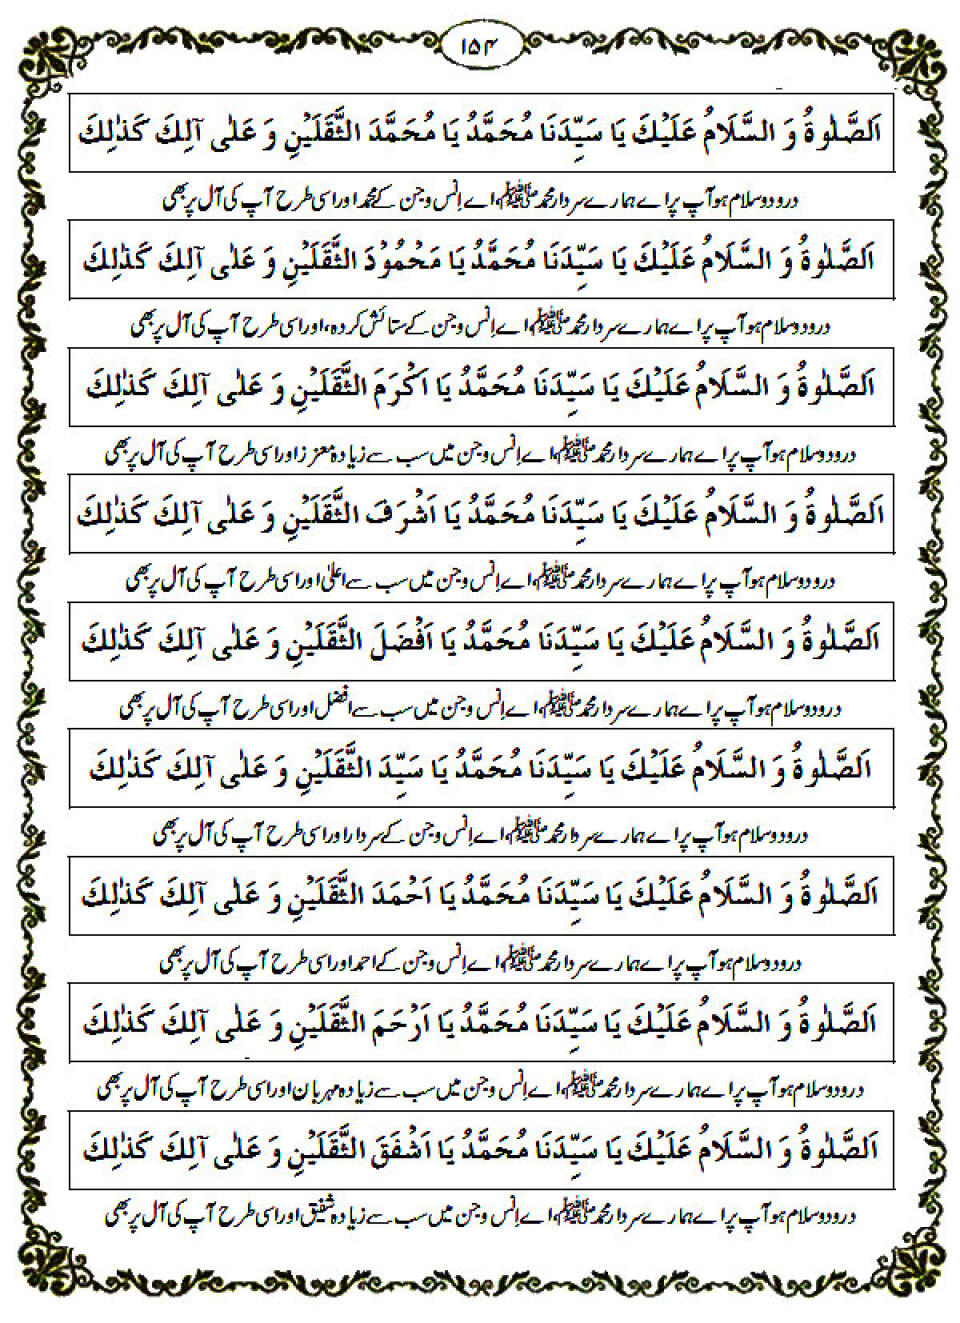 ۱۵۴
اَلصَّلٰوةُ وَ السَّلَامُ عَلَيْكَ يَا سَيِّدَنَا مُحَمَّدُ يَا مُحَمَّدَ الثَّقَلَيْنِ وَ عَلٰى آلِكَ كَذٰلِكَ
درود و سلام ہو آپ پر اے ہمارے سردار محمد ﷺ، اے اِنس و جن کے محمد اور اسی طرح آپ کی آل پر بھی
اَلصَّلٰوةُ وَ السَّلَامُ عَلَيْكَ يَا سَيِّدَنَا مُحَمَّدُ يَا مَحْمُوْدَ الثَّقَلَيْنِ وَ عَلٰى آلِكَ كَذٰلِكَ
درود و سلام ہو آپ پر اے ہمارے سردار محمد ﷺ، اے اِنس و جن کے ستائش کردہ، اور اسی طرح آپ کی آل پر بھی
اَلصَّلٰوةُ وَ السَّلَامُ عَلَيْكَ يَا سَيِّدَنَا مُحَمَّدُ يَا اَكْرَمَ الثَّقَلَيْنِ وَ عَلٰى آلِكَ كَذٰلِكَ
درود و سلام ہو آپ پر اے ہمارے سردار محمد ﷺ، اے اِنس و جن میں سب سے زیادہ معزز اور اسی طرح آپ کی آل پر بھی
اَلصَّلٰوةُ وَ السَّلَامُ عَلَيْكَ يَا سَيِّدَنَا مُحَمَّدُ يَا اَشْرَفَ الثَّقَلَيْنِ وَ عَلٰى آلِكَ كَذٰلِكَ
درود و سلام ہو آپ پر اے ہمارے سردار محمد ﷺ، اے اِنس و جن میں سب سے اعلیٰ اور اسی طرح آپ کی آل پر بھی
اَلصَّلٰوةُ وَ السَّلَامُ عَلَيْكَ يَا سَيِّدَنَا مُحَمَّدُ يَا اَفْضَلَ الثَّقَلَيْنِ وَ عَلٰى آلِكَ كَذٰلِكَ
درود و سلام ہو آپ پر اے ہمارے سردار محمد ﷺ، اے اِنس و جن میں سب سے افضل اور اسی طرح آپ کی آل پر بھی
اَلصَّلٰوةُ وَ السَّلَامُ عَلَيْكَ يَا سَيِّدَنَا مُحَمَّدُ يَا سَيِّدَ الثَّقَلَيْنِ وَ عَلٰى آلِكَ كَذٰلِكَ
درود و سلام ہو آپ پر اے ہمارے سردار محمد ﷺ، اے اِنس و جن کے سردار اور اسی طرح آپ کی آل پر بھی
اَلصَّلٰوةُ وَ السَّلَامُ عَلَيْكَ يَا سَيِّدَنَا مُحَمَّدُ يَا اَحْمَدَ الثَّقَلَيْنِ وَ عَلٰى آلِكَ كَذٰلِكَ
درود و سلام ہو آپ پر اے ہمارے سردار محمد ﷺ، اے اِنس و جن کے احمد اور اسی طرح آپ کی آل پر بھی
اَلصَّلٰوةُ وَ السَّلَامُ عَلَيْكَ يَا سَيِّدَنَا مُحَمَّدُ يَا اَرْحَمَ الثَّقَلَيْنِ وَ عَلٰى آلِكَ كَذٰلِكَ
درود و سلام ہو آپ پر اے ہمارے سردار محمد ﷺ، اے اِنس و جن میں سب سے زیادہ مہربان اور اسی طرح آپ کی آل پر بھی
اَلصَّلٰوةُ وَ السَّلَامُ عَلَيْكَ يَا سَيِّدَنَا مُحَمَّدُ يَا اَشْفَقَ الثَّقَلَيْنِ وَ عَلٰى آلِكَ كَذٰلِكَ
درود و سلام ہو آپ پر اے ہمارے سردار محمد ﷺ، اے اِنس و جن میں سب سے زیادہ شفیق اور اسی طرح آپ کی آل پر بھی